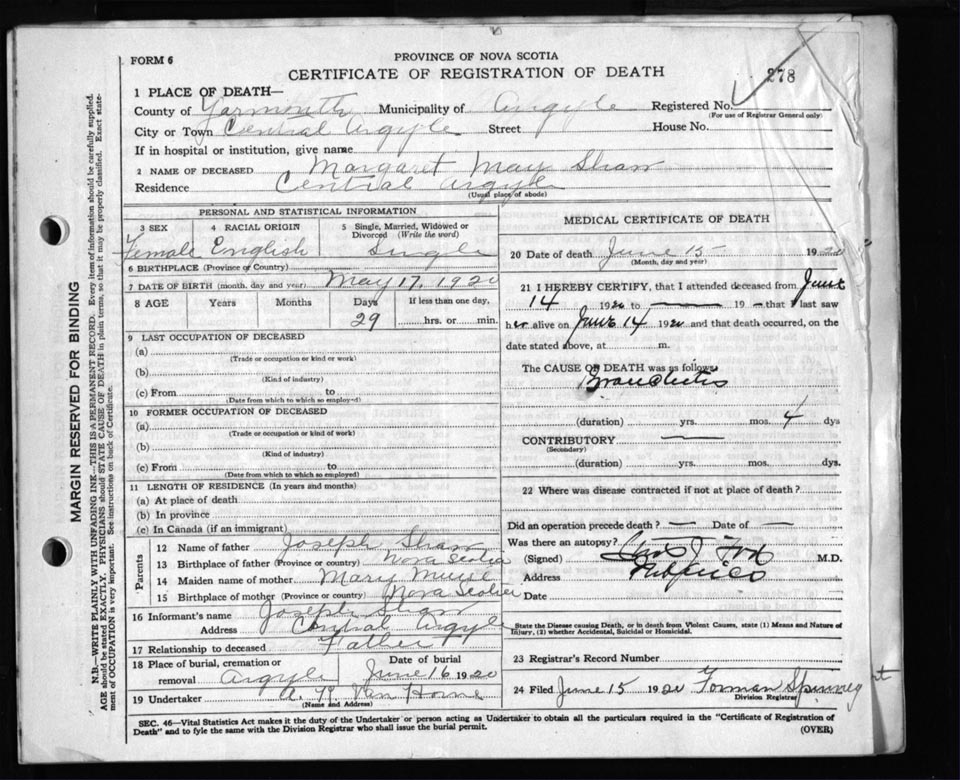 FORM 6
PROVINCE OF NOVA SCOTIA
CERTIFICATE OF REGISTRATION OF DEATH
278
1 PLACE OF DEATH—
County of Yarmouth Municipality of Argyle Registered No.
(For use of Registrar General only)
City or Town Central Argyle Street House No.
If in hospital or institution, give name
2 NAME OF DECEASED Margaret May Shaw
Residence Central Argyle
(Usual place of abode)
PERSONAL AND STATISTICAL INFORMATION
3 SEX 4 RACIAL ORIGIN 5 Single, Married, Widowed or Divorced (Write the word)
Female English Single
6 BIRTHPLACE (Province or Country)
7 DATE OF BIRTH (month, day and year) May 17, 1920
8 AGE Years Months Days If less than one day,
29 hrs. or min.
9 LAST OCCUPATION OF DECEASED
(a)
(Trade or occupation or kind or work)
(b)
(Kind of industry)
(c) From to
(Date from which to which so employed)
10 FORMER OCCUPATION OF DECEASED
(a)
(Trade or occupation or kind of work)
(b)
(Kind of industry)
(c) From to
(Date from which to which so employed)
11 LENGTH OF RESIDENCE (In years and months)
(a) At place of death
(b) In province
(c) In Canada (if an immigrant)
Parents
12 Name of father Joseph Shaw
13 Birthplace of father (Province or country) Nova Scotia
14 Maiden name of mother Mary Muise
15 Birthplace of mother (Province or country) Nova Scotia
16 Informant's name Joseph Shaw
Address Central Argyle
17 Relationship to deceased Father
18 Place of burial, cremation or removal Argyle Date of burial June 16 1920
19 Undertaker A. Van Horne
(Name and Address)
MEDICAL CERTIFICATE OF DEATH
20 Date of death June 15 1920
(Month, day and year)
21 I HEREBY CERTIFY, that I attended deceased from June
14 1920 to — 19 — that I last saw
her alive on June 14 1920 and that death occurred, on the
date stated above, at m.
The CAUSE OF DEATH was as follows:
Bronchitis
(duration) yrs. mos. 4 dys
CONTRIBUTORY —
(Secondary)
(duration) yrs. mos. dys.
22 Where was disease contracted if not at place of death?
Did an operation precede death? — Date of —
Was there an autopsy?
(Signed) M.D.
Address Pubnico
Date
State the Disease causing Death, or in death from Violent Causes, state (1) Means and Nature of
Injury, (2) whether Accidental, Suicidal or Homicidal.
23 Registrar's Record Number
24 Filed June 15 1920 Forman Spinney
Division Registrar
SEC. 46—Vital Statistics Act makes it the duty of the Undertaker or person acting as Undertaker to obtain all the particulars required in the "Certificate of Registration of
Death" and to fyle the same with the Division Registrar who shall issue the burial permit. (OVER)
MARGIN RESERVED FOR BINDING
N.B.—WRITE PLAINLY WITH UNFADING INK—THIS IS A PERMANENT RECORD. Every item of information should be carefully supplied.
AGE should be stated EXACTLY. PHYSICIANS should STATE CAUSE OF DEATH in plain terms, so that it may be properly classified. Exact state-
ment of OCCUPATION is very important. See instructions on back of Certificate.